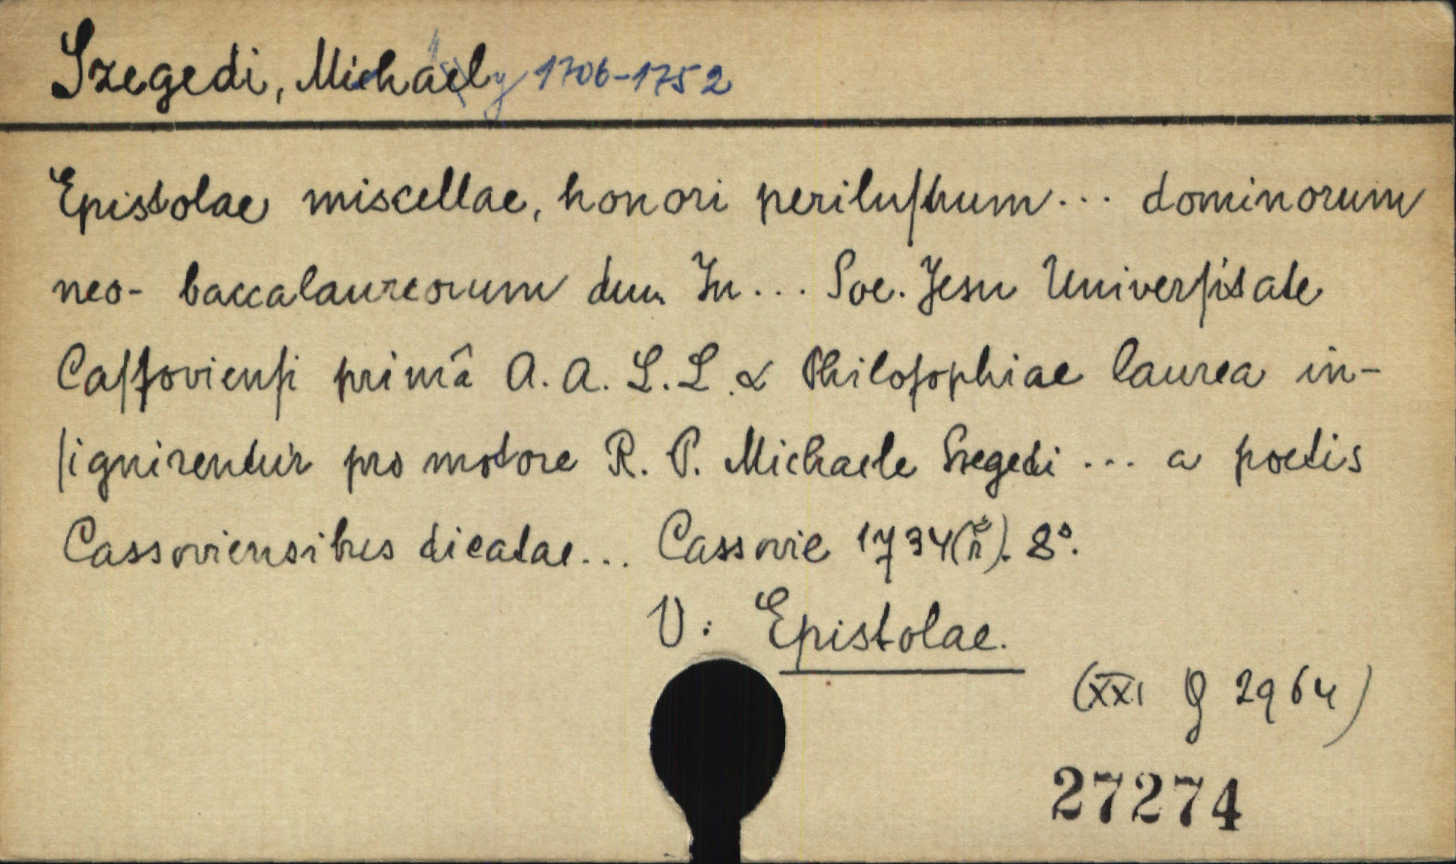 Szegedi, Michael 1706-1752
Epistolae miscellae, honori periluſtrium ... dominorum
neo- baccalaureorum dum In ... Soc. Jesu Univerſitate
Caſſovienſi primâ A. A. L. L. & Philoſophiae laurea in-
ſignirentur pro motore R. P. Michaele Szegedi ... a poetis
Cassoviensibus dicatae... Cassovie 1734 8°.
V: Epistolae.
(XXI 2964)
27274